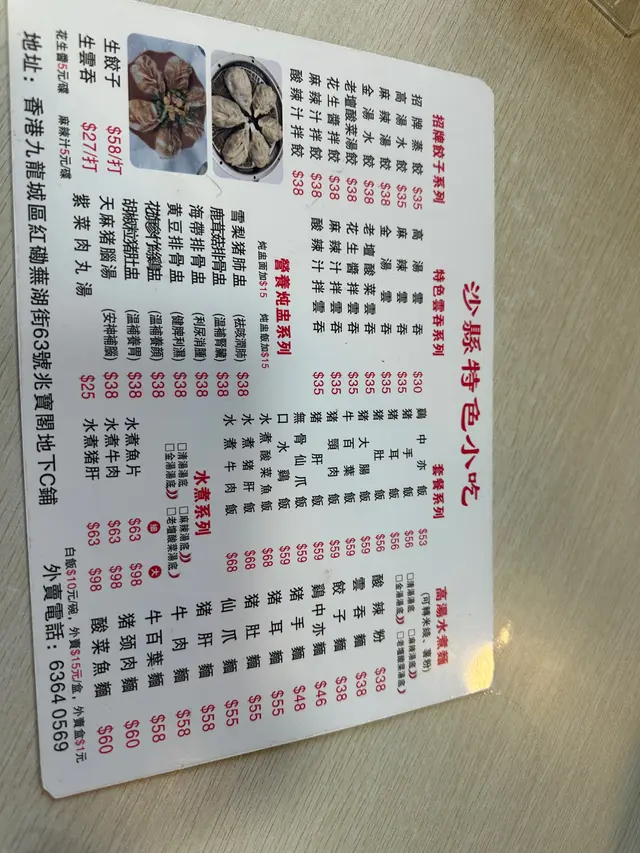 沙縣特色小吃
招牌餃子系列
招牌蒸餃 $35
高湯水餃 $35
麻辣湯餃 $38
金湯水餃 $38
老壇酸菜湯餃 $38
花生醬拌餃 $38
麻辣汁拌餃 $38
酸辣汁拌餃 $38
特色雲吞系列
高湯雲吞 $30
麻辣雲吞 $35
金湯雲吞 $35
老壇酸菜雲吞 $35
花生醬拌雲吞 $35
麻辣汁拌雲吞 $35
酸辣汁拌雲吞 $35
營養炖盅系列
炖盅面加$15 炖盅飯加$15
雪梨豬肺盅 (祛咳潤肺) $38
鹿茸菇排骨盅 (溫補腎臟) $38
海帶排骨盅 (利尿消腫) $38
黄豆排骨盅 (健脾利濕) $38
(溫補養顏) $38
胡椒粒豬肚盅 (溫補養胃) $38
天麻豬腦湯 (安神補腦) $38
紫菜肉丸湯 $25
套餐系列
雞中亦飯 $53
豬手飯 $56
豬耳飯 $56
豬肚飯 $56
豬大腸飯 $59
牛百葉飯 $59
豬頸肉飯 $59
豬肝飯 $59
無骨仙爪飯 $59
口水雞飯 $59
水煮酸菜魚飯 $68
水煮豬肝飯 $68
水煮牛肉飯 $68
水煮系列
□清湯湯底 □麻辣湯底
□金湯湯底 □老壇酸菜湯底
細 大
水煮魚片 $63 $98
水煮牛肉 $63 $98
水煮猪肝 $63 $98
高湯水煮麵
(可轉米綫、薯粉)
□清湯湯底 □麻辣湯底
□金湯湯底 □老壇酸菜湯底
酸辣粉 $38
雲吞麵 $38
餃子麵 $38
雞中亦麵 $46
豬手麵 $48
豬耳麵 $55
豬肚麵 $55
仙爪麵 $55
豬肝麵 $58
牛肉麵 $58
牛百葉麵 $58
猪颈肉麵 $60
酸菜魚麵 $60
生餃子 $58/打
生雲吞 $27/打
花生醬5元/碟 麻辣汁5元/碟
白飯$10元/碗，外賣$15元/盒，外賣盒$1元
地址：香港九龍城區紅磡蕪湖街63號兆寶閣地下C鋪
外賣電話：6364 0569